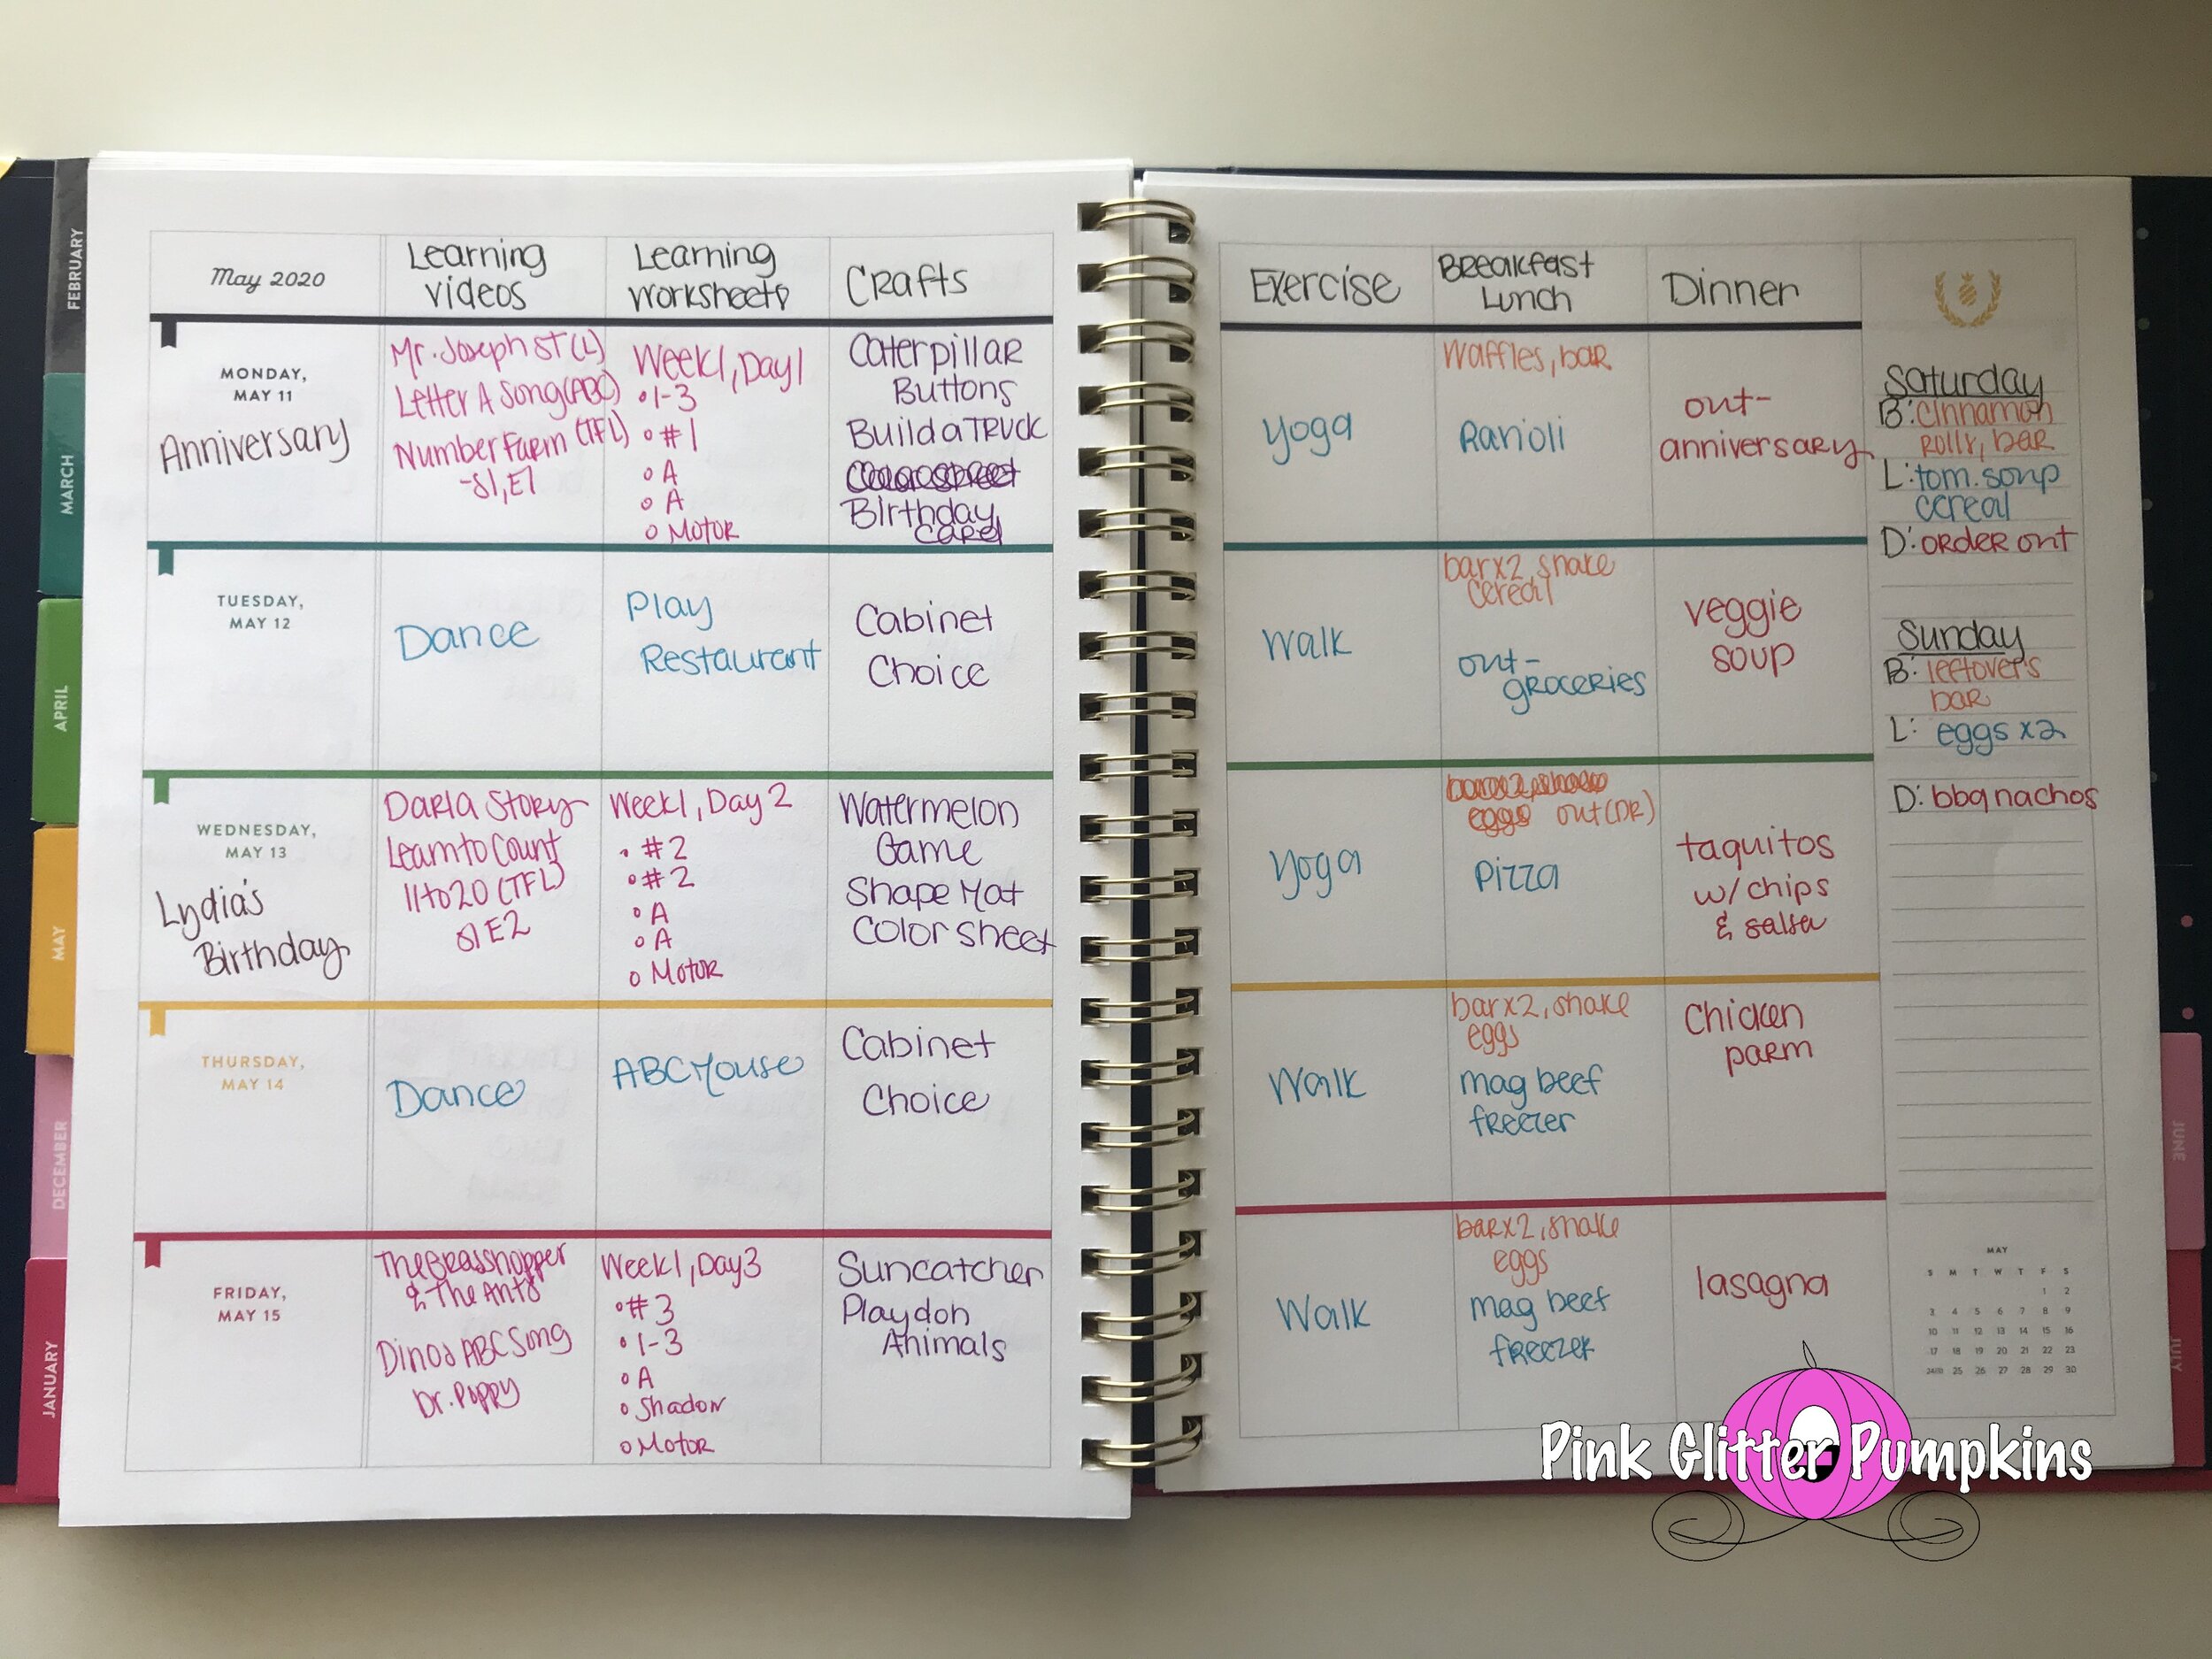 May 2020
Learning
Videos
Learning
Worksheets
Crafts
MONDAY,
MAY 11
Anniversary
Mr. Joseph ST (L)
Letter A Song (ABC)
Number Farm (TFL)
-S1, E7
Week 1, Day 1
1-3
#1
A
A
Motor
Caterpillar
Buttons
Build a Truck
Birthday
Card
TUESDAY,
MAY 12
Dance
Play
Restaurant
Cabinet
Choice
WEDNESDAY,
MAY 13
Lydia's
Birthday
Darla Story
Learn to Count
11 to 20 (TFL)
S1 E2
Week 1, Day 2
#2
#2
A
A
Motor
Watermelon
Game
Shape Mat
Color sheet
THURSDAY,
MAY 14
Dance
ABC Mouse
Cabinet
Choice
FRIDAY,
MAY 15
The Grasshopper
& The Ants
Dinos ABC Song
Dr. Poppy
Week 1, Day 3
#3
1-3
A
Shadow
Motor
Suncatcher
Playdoh
Animals
Exercise
Breakfast
Lunch
Dinner
yoga
Waffles, bar
Ravioli
out-
anniversary
walk
bar x2, shake
cereal
out-
groceries
veggie
soup
yoga
eggs out (DR)
Pizza
taquitos
w/ chips
& salsa
Walk
bar x2, shake
eggs
mag beef
freezer
Chicken
parm
Walk
bar x2, shake
eggs
mag beef
freezer
lasagna
Saturday
B: Cinnamon
rolls, bar
L: tom. soup
cereal
D: order out
Sunday
B: leftovers
bar
L: eggs x2
D: bbq nachos
MAY
S M T W T F S
1 2
3 4 5 6 7 8 9
10 11 12 13 14 15 16
17 18 19 20 21 22 23
24/31 25 26 27 28 29 30
FEBRUARY
MARCH
APRIL
MAY
DECEMBER
JANUARY
JUNE
JULY
Pink Glitter Pumpkins